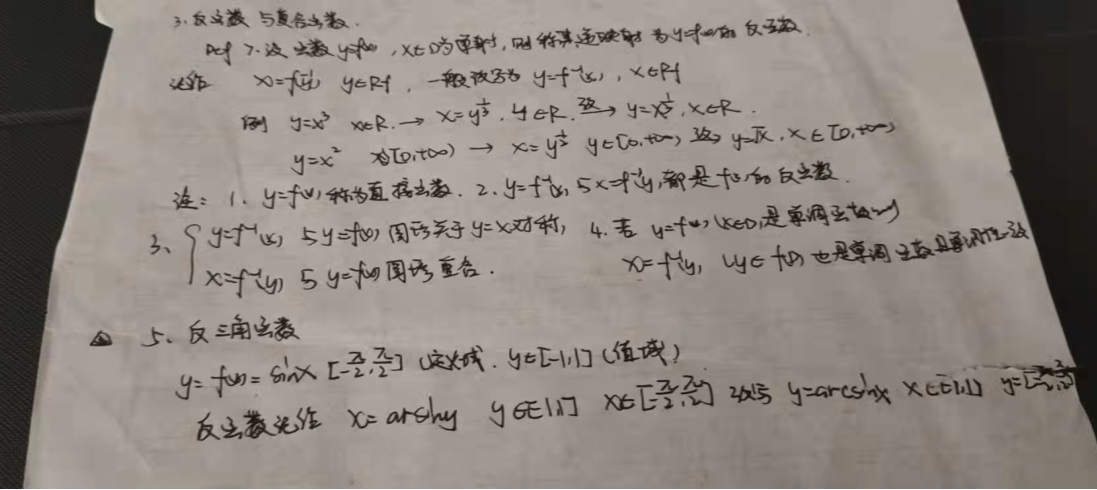 3. 反函数与复合函数.
Def 7. 设函数y=f(x), x∈D为单射, 则称其逆映射为y=f(x)的反函数.
记作 x=f⁻¹(y) y∈Rf, 一般改写为 y=f⁻¹(x), x∈Rf
例 y=x³ x∈R. → x=y^{1/3}. y∈R. 改→ y=x^{1/3}, x∈R.
y=x² x∈[0,+∞) → x=y^{1/2} y∈[0,+∞) 改→ y=√x, x∈[0,+∞)
注: 1. y=f(x)称为直接函数. 2. y=f⁻¹(x)与x=f⁻¹(y)都是f(x)的反函数.
3、{ y=f⁻¹(x)与y=f(x)图形关于y=x对称, 4. 若 y=f(x), (x∈D)是单调函数
x=f⁻¹(y)与y=f(x)图形重合. x=f⁻¹(y), (y∈f(D)) 也是单调函数且单调性一致
5. 反三角函数
y=f(x)=sinx [-π/2, π/2] (定义域. y∈[-1,1] (值域)
反函数记作 x=arcsiny y∈[-1,1] x∈[-π/2, π/2] 改写 y=arcsinx x∈[-1,1] y=[-π/2, π/2]